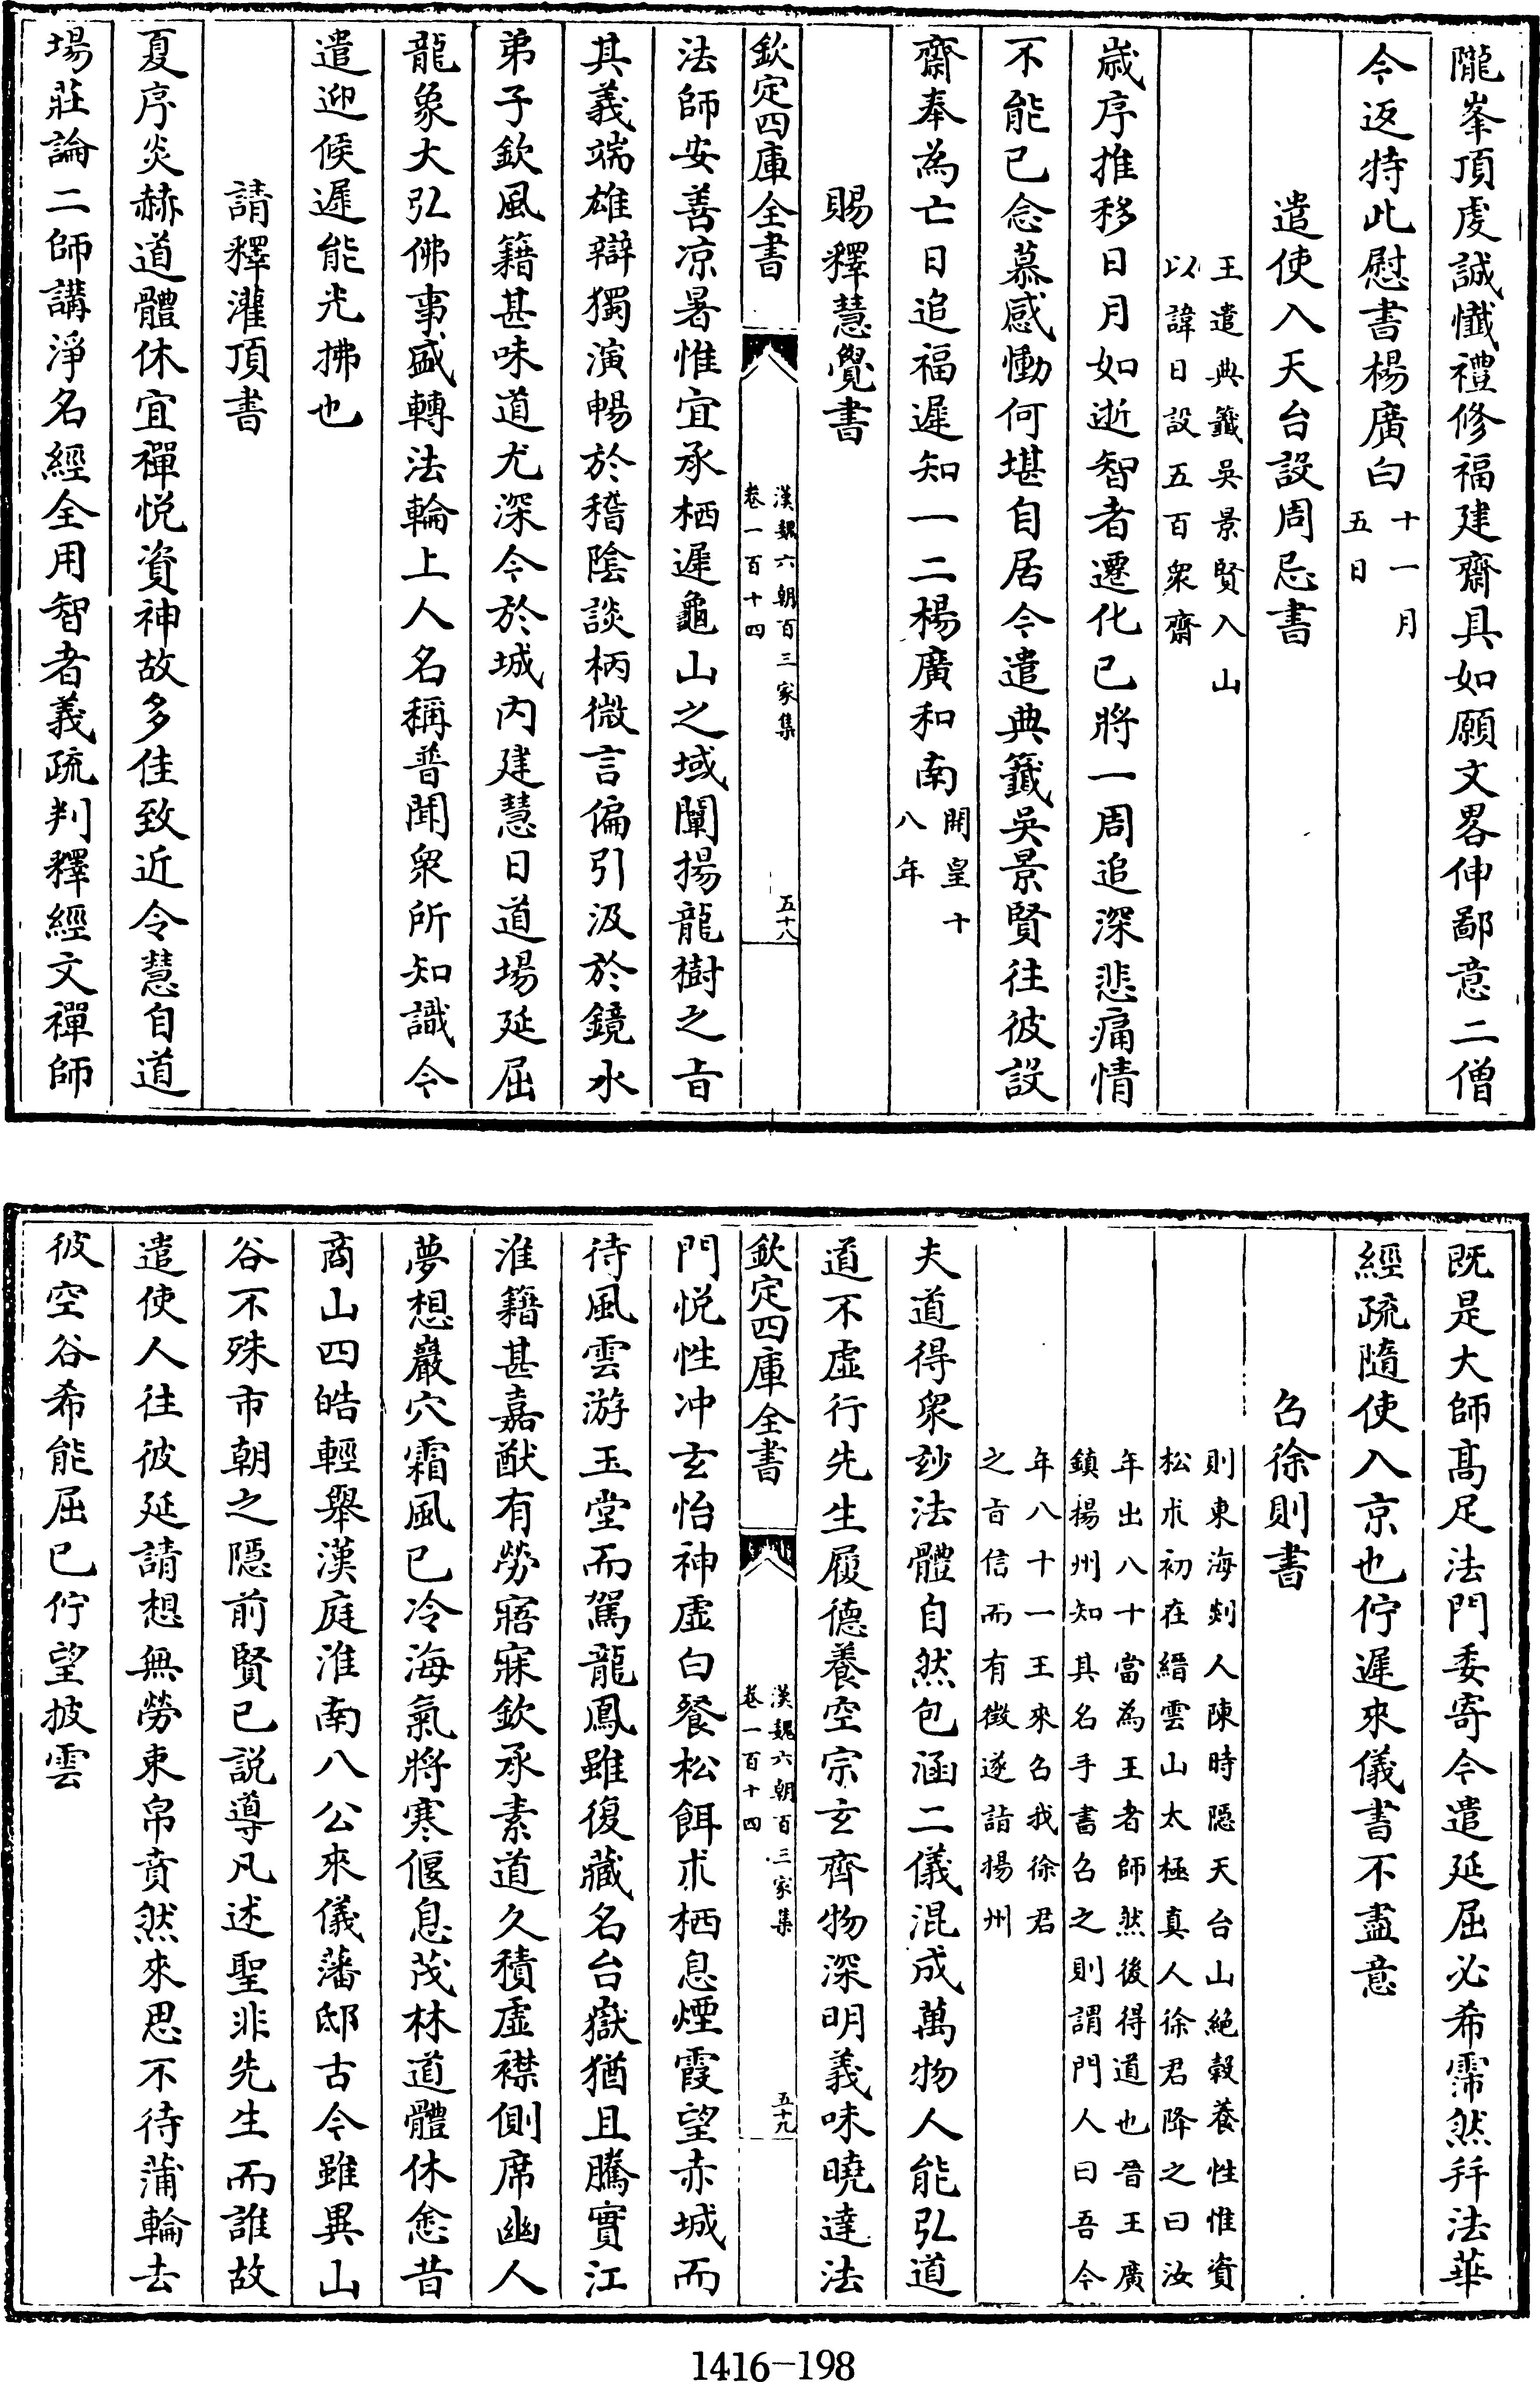 隴峯頂虔誠懺禮修福建齋具如願文畧伸鄙意二僧
今返特此慰書楊廣白十一月
五日
遣使入天台設周忌書
王遣典籤吳景賢入山
以諱日設五百衆齋
歳序推移日月如逝智者遷化已將一周追深悲痛情
不能已念慕感慟何堪自居今遣典籤吳景賢往彼設
齋奉為亡日追福遲知一二楊廣和南開皇十
八年
賜釋慧覺書
欽定四庫全書
漢魏六朝百三家集
卷一百十四
五十八
法師安善凉暑惟宜承栖遲龜山之域闡揚龍樹之㫖
其義端雄辯獨演暢於稽陰談柄微言偏引汲於鏡水
弟子欽風籍甚味道尤深今於城内建慧日道場延屈
龍象大弘佛事盛轉法輪上人名稱普聞衆所知識今
遣迎候遲能光拂也
請釋灌頂書
夏序炎赫道體休宜禪悦資神故多佳致近令慧自道
場莊論二師講淨名經全用智者義疏判釋經文禪師
既是大師髙足法門委寄今遣延屈必希霈然拜法華
經疏隨使入京也佇遲來儀書不盡意
召徐則書
則東海剡人陳時隠天台山絶穀養性惟資
松朮初在縉雲山太極真人徐君降之曰汝
年出八十當為王者師然後得道也晉王廣
鎮揚州知其名手書召之則謂門人曰吾今
年八十一王來召我徐君
之㫖信而有徴遂詣揚州
夫道得衆玅法體自然包涵二儀混成萬物人能弘道
道不虚行先生履德養空宗玄齊物深明義味曉達法
欽定四庫全書
漢魏六朝百三家集
卷一百十四
五十九
門悦性冲玄怡神虚白餐松餌朮栖息煙霞望赤城而
待風雲游玉堂而駕龍鳳雖復藏名台嶽猶且騰實江
淮籍甚嘉猷有勞寤寐欽承素道久積虚襟側席幽人
夢想巖穴霜風已冷海氣將寒偃息茂林道體休悆昔
商山四皓輕舉漢庭淮南八公來儀藩邸古今雖異山
谷不殊市朝之隠前賢已説導凡述聖非先生而誰故
遣使人往彼延請想無勞束帛賁然來思不待蒲輪去
彼空谷希能屈已佇望披雲
1416-198